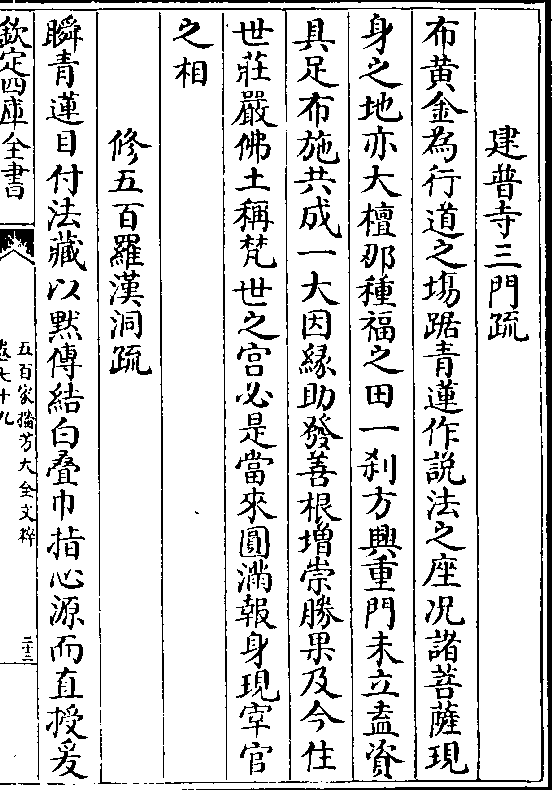 建普寺三門疏
布黄金為行道之塲踞青蓮作説法之座况諸菩薩現
身之地亦大檀那種福之田一刹方興重門未立盍資
具足布施共成一大因緣助發善根增崇勝果及今住
世莊嚴佛土稱梵世之宫必是當來圓滿報身現宰官
之相
修五百羅漢洞疏
瞬青蓮目付法藏以黙傳結白疊巾指心源而直授爰
欽定四庫全書
五百家播芳大全文粹
卷七十九
二十三